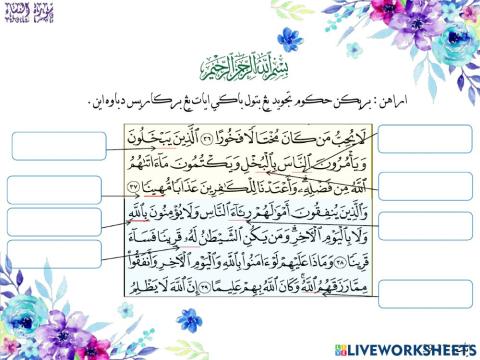 سورة النساء
بِسْمِ ٱللَّهِ ٱلرَّحْمَٰنِ ٱلرَّحِيمِ
ارهن : بريکن حکوم تجويد يڠ بتول باݢي ايات يڠ برݢاريس دباوه اين .
لَا يُحِبُّ مَن كَانَ مُخْتَالًا فَخُورًا ٣٦ ٱلَّذِينَ يَبْخَلُونَ
وَيَأْمُرُونَ ٱلنَّاسَ بِٱلْبُخْلِ وَيَكْتُمُونَ مَآ ءَاتَىٰهُمُ
ٱللَّهُ مِن فَضْلِهِۦ ۗ وَأَعْتَدْنَا لِلْكَٰفِرِينَ عَذَابًا مُّهِينًا ٣٧
وَٱلَّذِينَ يُنفِقُونَ أَمْوَٰلَهُمْ رِئَآءَ ٱلنَّاسِ وَلَا يُؤْمِنُونَ بِٱللَّهِ
وَلَا بِٱلْيَوْمِ ٱلْأَخِرِ ۗ وَمَن يَكُنِ ٱلشَّيْطَٰنُ لَهُۥ قَرِينًا فَسَآءَ
قَرِينًا ٣٨ وَمَاذَا عَلَيْهِمْ لَوْ ءَامَنُوا۟ بِٱللَّهِ وَٱلْيَوْمِ ٱلْأَخِرِ وَأَنفَقُوا۟
مِمَّا رَزَقَهُمُ ٱللَّهُ ۚ وَكَانَ ٱللَّهُ بِهِمْ عَلِيمًا ٣٩ إِنَّ ٱللَّهَ لَا يَظْلِمُ
LIVEWORKSHEETS